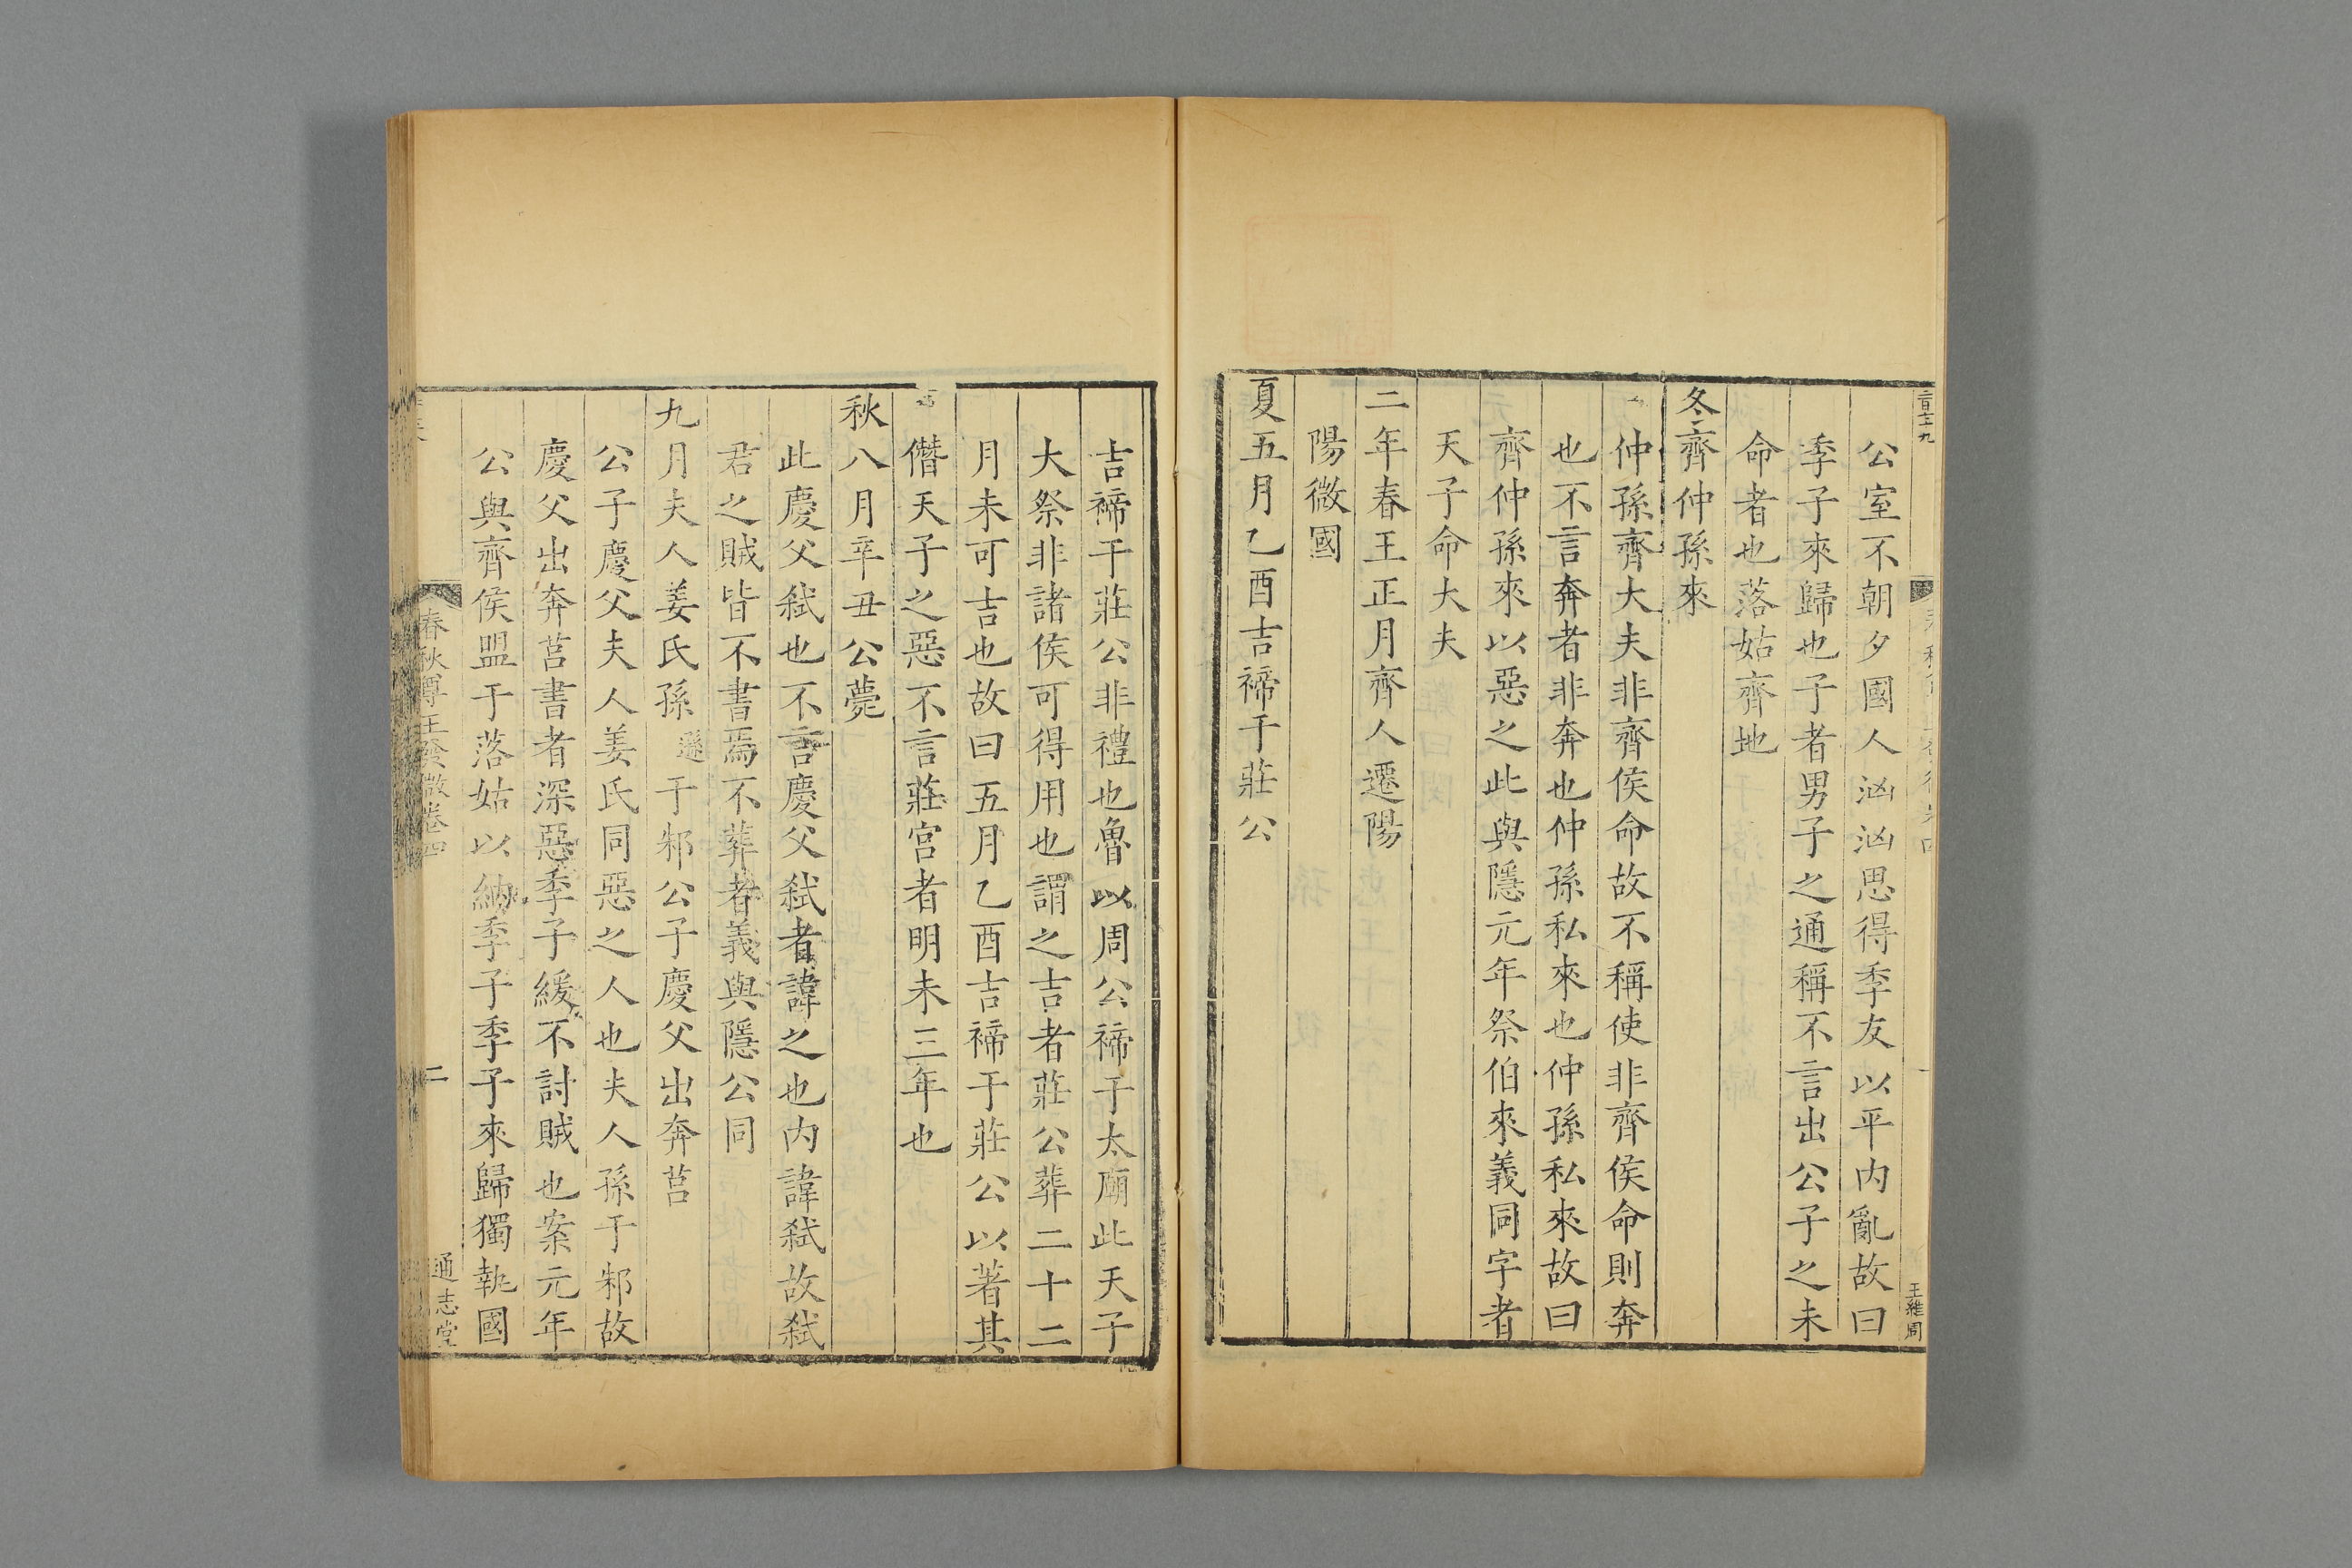 公室不朝夕國人洶洶思得季友以平内亂故曰
季子來歸也子者男子之通稱不言出公子之未
命者也落姑齊地
冬齊仲孫來
仲孫齊大夫非齊侯命故不稱使非齊侯命則奔
也不言奔者非奔也仲孫私來也仲孫私來故曰
齊仲孫來以惡之此與隱元年祭伯來義同字者
天子命大夫
二年春王正月齊人遷陽
陽微國
夏五月乙酉吉禘于莊公
王維周
吉禘于莊公非禮也魯以周公禘于太廟此天子
大祭非諸侯可得用也謂之吉者莊公葬二十二
月未可吉也故曰五月乙酉吉禘于莊公以著其
僭天子之惡不言莊宫者明未三年也
秋八月辛丑公薨
此慶父弑也不言慶父弑者諱之也内諱弑故弑
君之賊皆不書焉不葬者義與隱公同
九月夫人姜氏孫遜于邾公子慶父出奔莒
公子慶父夫人姜氏同惡之人也夫人孫于邾故
慶父出奔莒書者深惡季子緩不討賊也案元年
公與齊侯盟于落姑以納季子季子來歸獨執國
春秋尊王發微卷四
二
通志堂